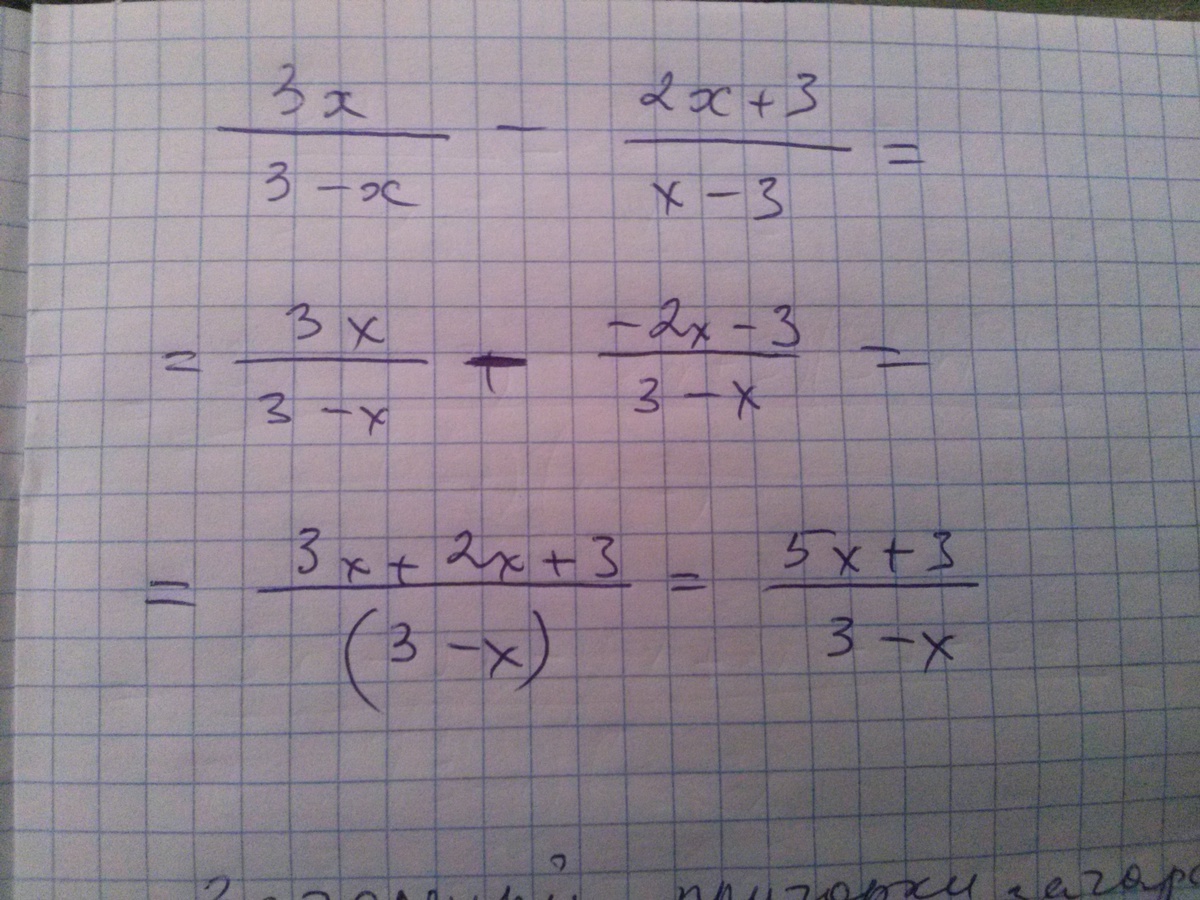 3x / (3 - x) - (2x + 3) / (x - 3) =
= 3x / (3 - x) + (-2x - 3) / (3 - x) =
= (3x + 2x + 3) / (3 - x) = (5x + 3) / (3 - x)